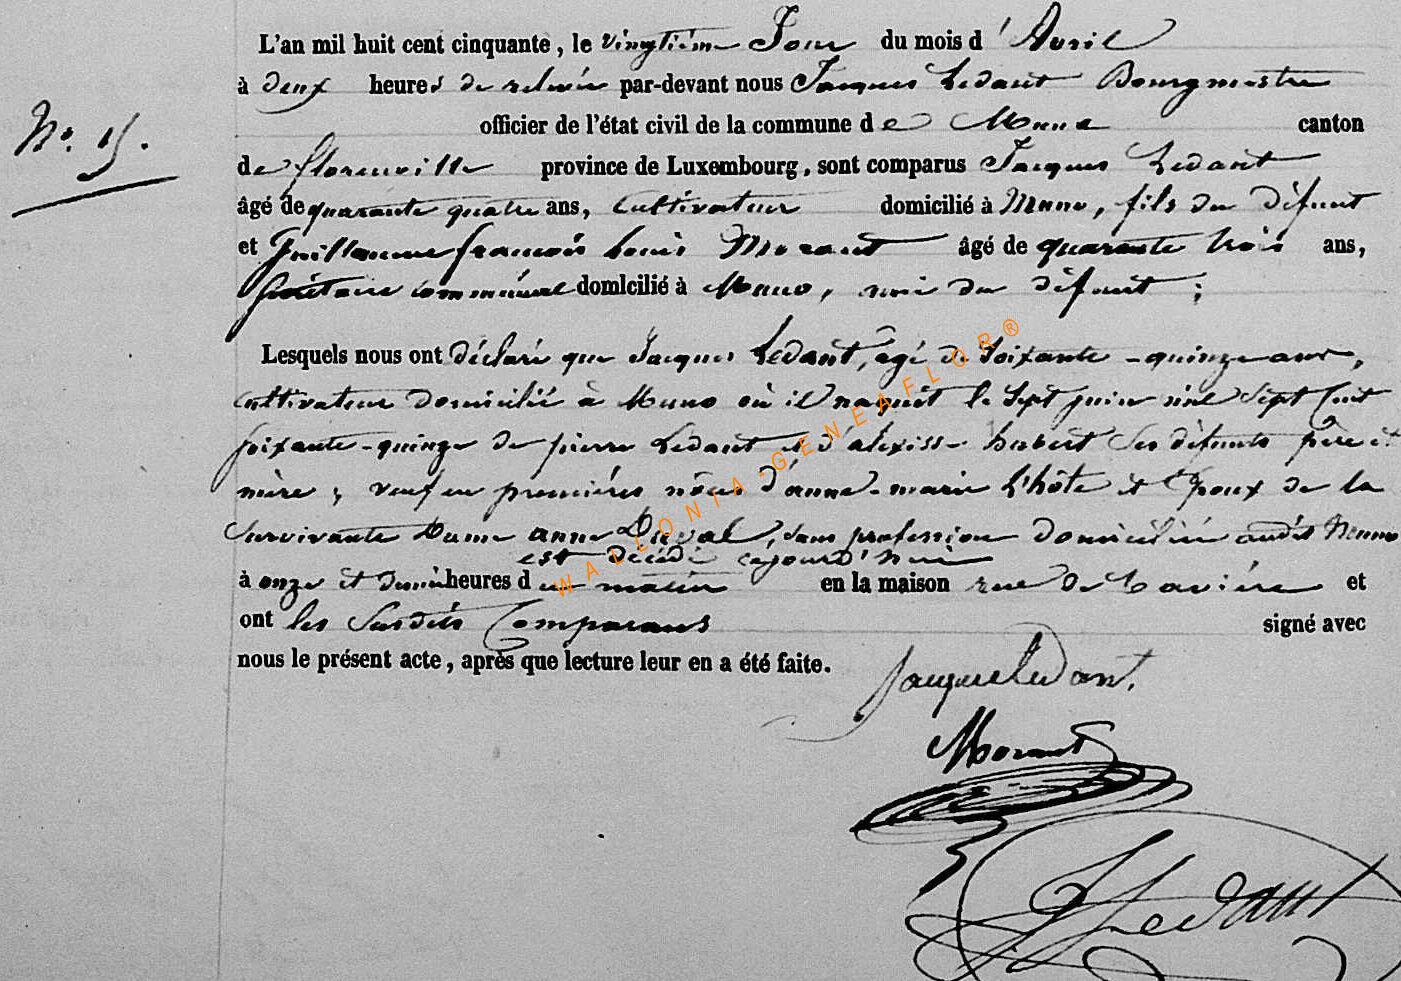 L'an mil huit cent cinquante, le vingtième Jour du mois d' Avril
à deux heures de relevée par-devant nous Jacques Ledant Bourgmestre
officier de l'état civil de la commune de Muno canton
N°. 15.
de florenville province de Luxembourg, sont comparus Jacques Ledant
âgé de quarante quatre ans, Cultivateur domicilié à Muno, fils du défunt
et Guillaume françois Louis Morant âgé de quarante trois ans,
Secrétaire communal domicilié à Muno, du défunt ;
Lesquels nous ont déclaré que Jacques Ledant, âgé de Soixante-quinze ans,
cultivateur domicilié à Muno où il naquit le Sept juin mil Sept Cent
soixante-quinze de pierre Ledant et d'alexisse hubert ses défunts père et
mère ; veuf en premières nôces d'anne-marie L'hôte et Epoux de la
Survivante Dame anne Duval, sans profession domiciliée audit Muno
est décédé cejourd'hui
à onze et demie heures du matin en la maison rue de Lavière et
ont les Susdits Comparans signé avec
nous le présent acte, après que lecture leur en a été faite.
Jacque Ledant.
Morant
J Ledant
WALLONIA-GENEAFLOR®